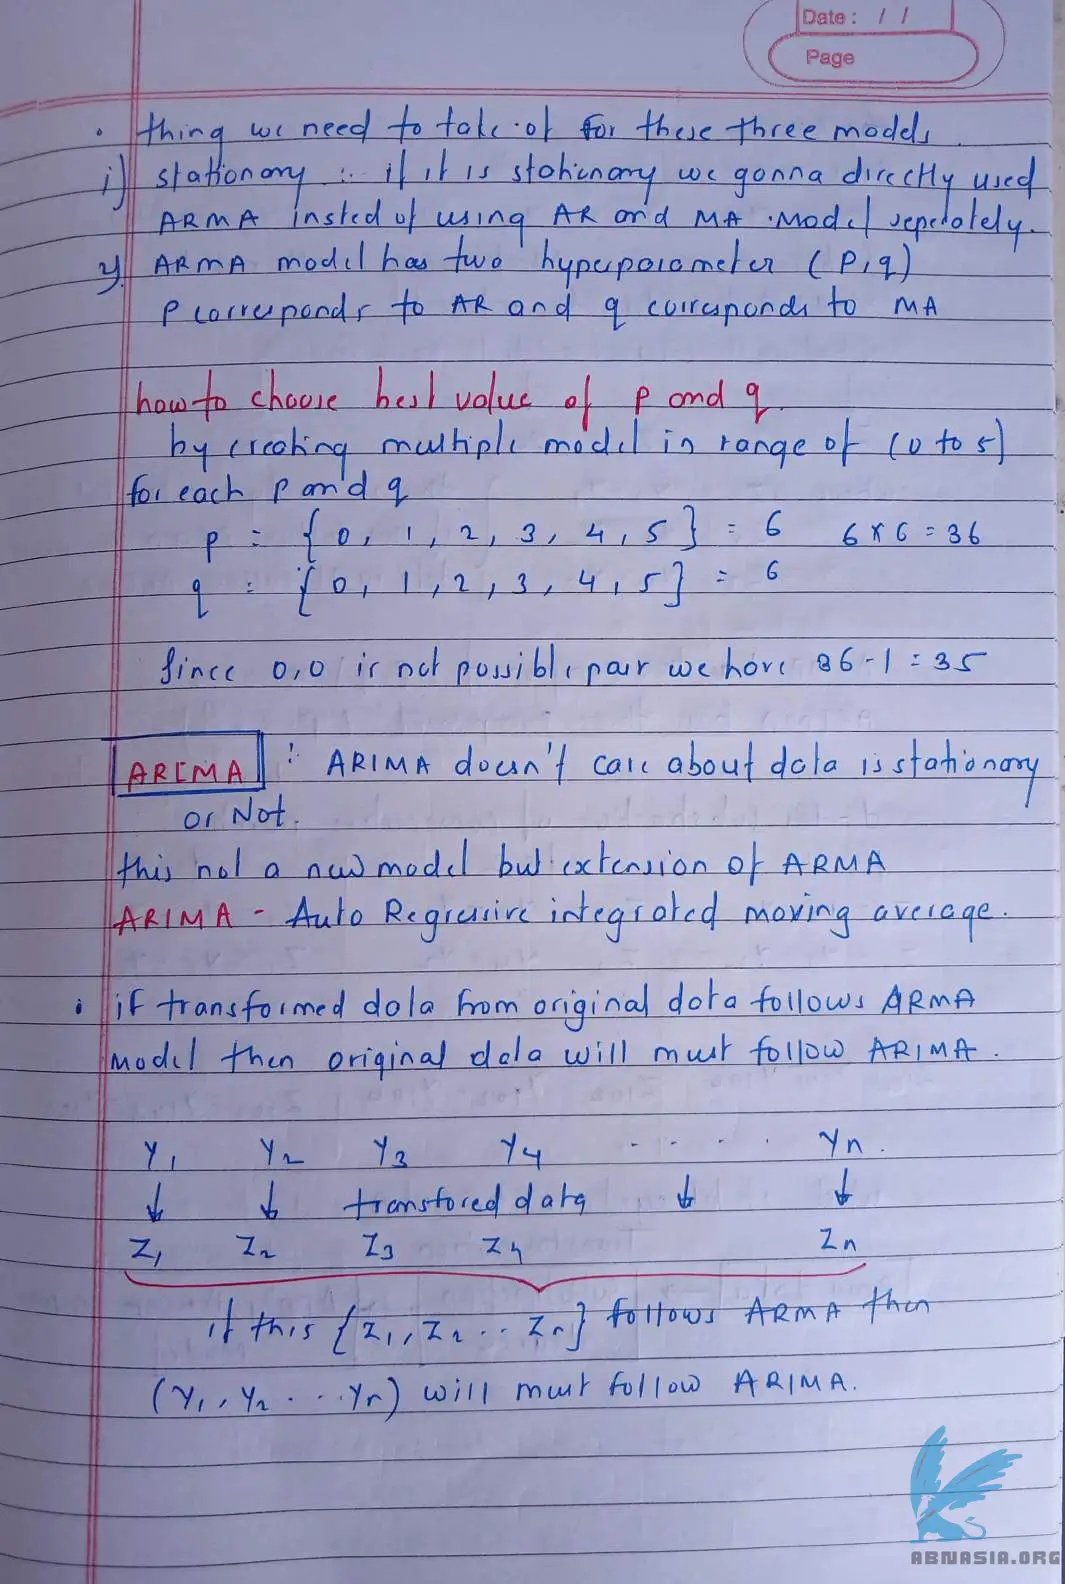 Date : / /
Page
. thing we need to take of for these three models
i) stationary : if it is stationary we gonna directly used
ARMA insted of using AR and MA model seperately.
y ARMA model has two hyperparameter (P, q)
P corresponds to AR and q corresponds to MA
how to choose best value of p and q
by creating multiple model in range of (0 to 5)
for each p and q
p = {0, 1, 2, 3, 4, 5} = 6 6 x 6 = 36
q = {0, 1, 2, 3, 4, 5} = 6
Since 0,0 is not possible pair we have 36 - 1 = 35
ARIMA : ARIMA doesn't care about data is stationary
or Not.
this not a new model but extension of ARMA
ARIMA - Auto Regressive integrated moving average.
. if transformed data from original data follows ARMA
model then original data will must follow ARIMA.
Y1 Y2 Y3 Y4 . . . . Yn.
↓ ↓ transfored data ↓ ↓
Z1 Z2 Z3 Z4 Zn
if this {Z1, Z2 .. Zn} follows ARMA then
(Y1, Y2 . .. Yn) will must follow ARIMA.
ABNASIA.ORG